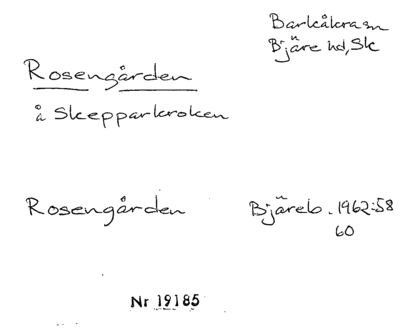 Barkåkra sn
Bjäre hd, Sk
Rosengården
å Skepparkroken
Rosengården Bjäreb. 1962:58
60
Nr 19185